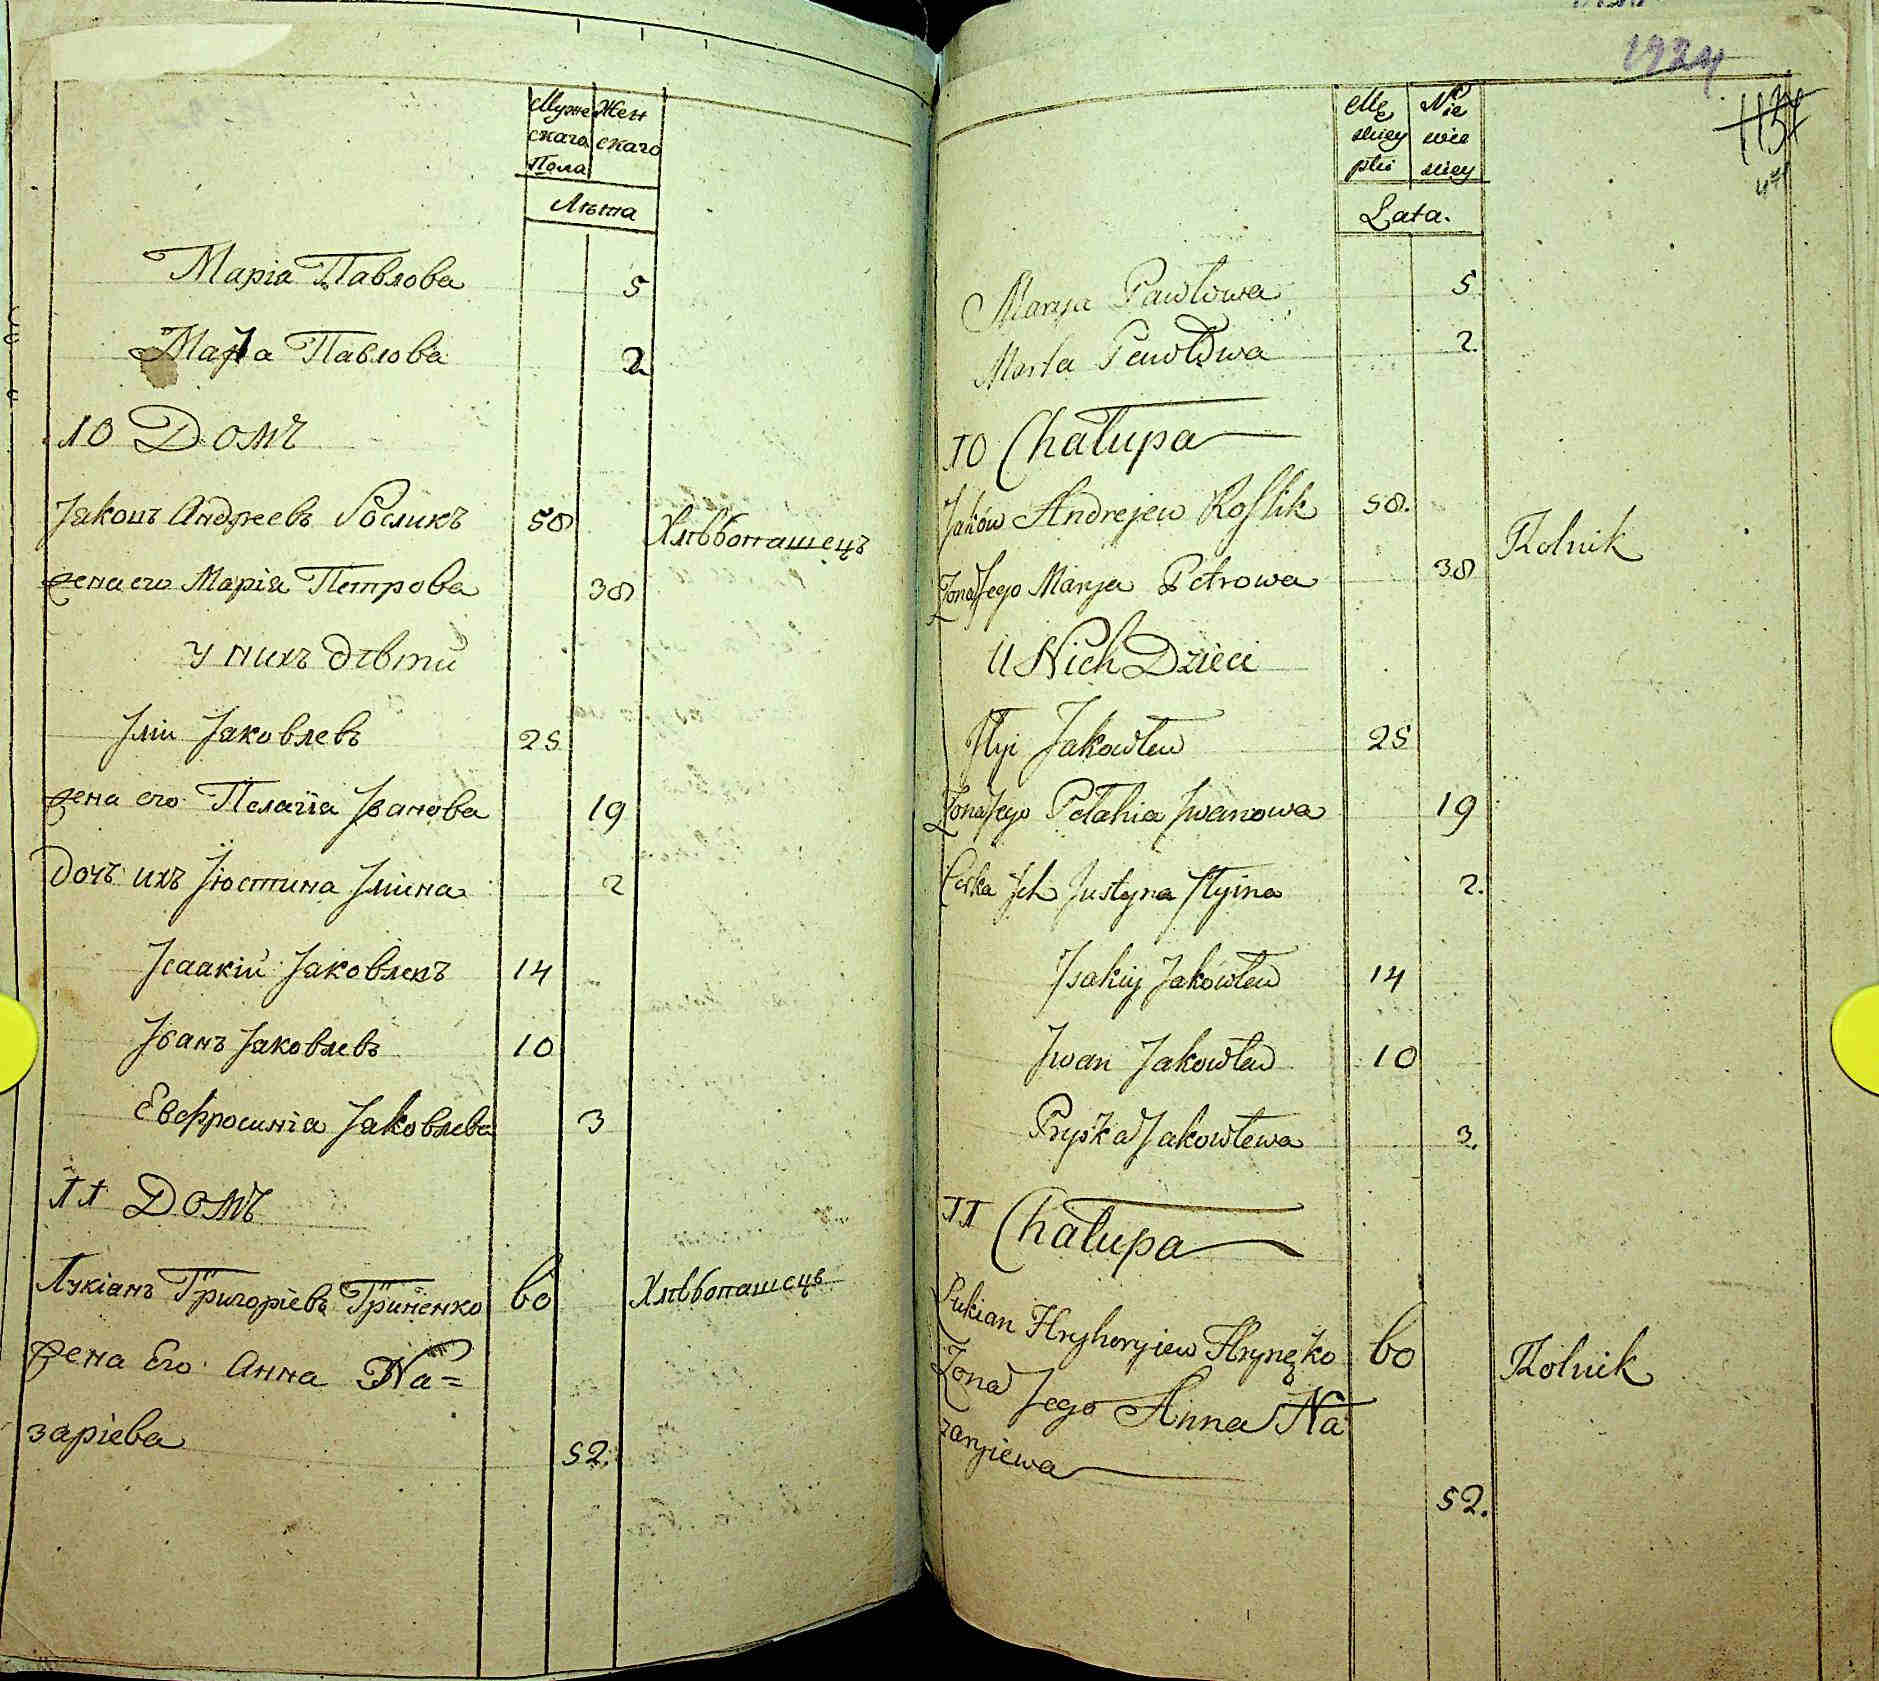 Муже Жен
скаго скаго
Пола
Лѣта
Марія Павлова 5
Марѳа Павлова 2
10 Домъ
Јаковъ Андреевъ Росликъ 58 Хлѣбопашецъ
жена его Марія Петрова 38
у нихъ дѣти
Јліи Јаковлевъ 25
жена его Пелагіа Јванова 19
дочь ихъ Јюстина Јліина 2
Јсаакій Јаковлевъ 14
Јванъ Јаковлевъ 10
Евфросиніа Јаковлева 3
11 Домъ
Лукіанъ Григоріевъ Гриненко 60 Хлѣбопашецъ
жена Его Анна Na=
заріева
52.
1924
Mę Nie
skiey wie
płci skiey
Lata.
Marya Pawłowa 5
Marta Pawłowa 2.
10 Chałupa
Jaków Andrejew Roslik 58. Rolnik
Żona Jego Marya Petrowa 38
U Nich Dzieci
Jłyi Jakowlew 25
Żona Jego Pełahia Jwanowa 19
Córka Jch Justyna Jłyina 2.
Jsakiy Jakowlew 14
Jwan Jakowlew 10
Pryśka Jakowlewa 3.
11 Chałupa
Łukian Hryhoryiew Hrynęko 60 Rolnik
Żona Jego Anna Na
zaryiewa
52.